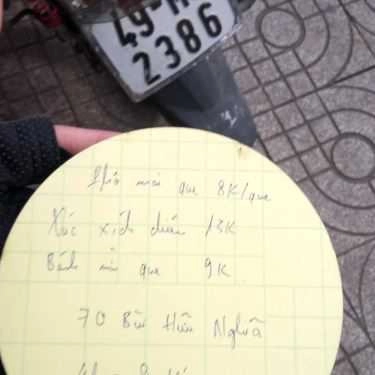 49-
2386
Phô mai que 8K/que
Xúc xích 13K
Bánh mì que 9K
70 Bùi Hữu Nghĩa